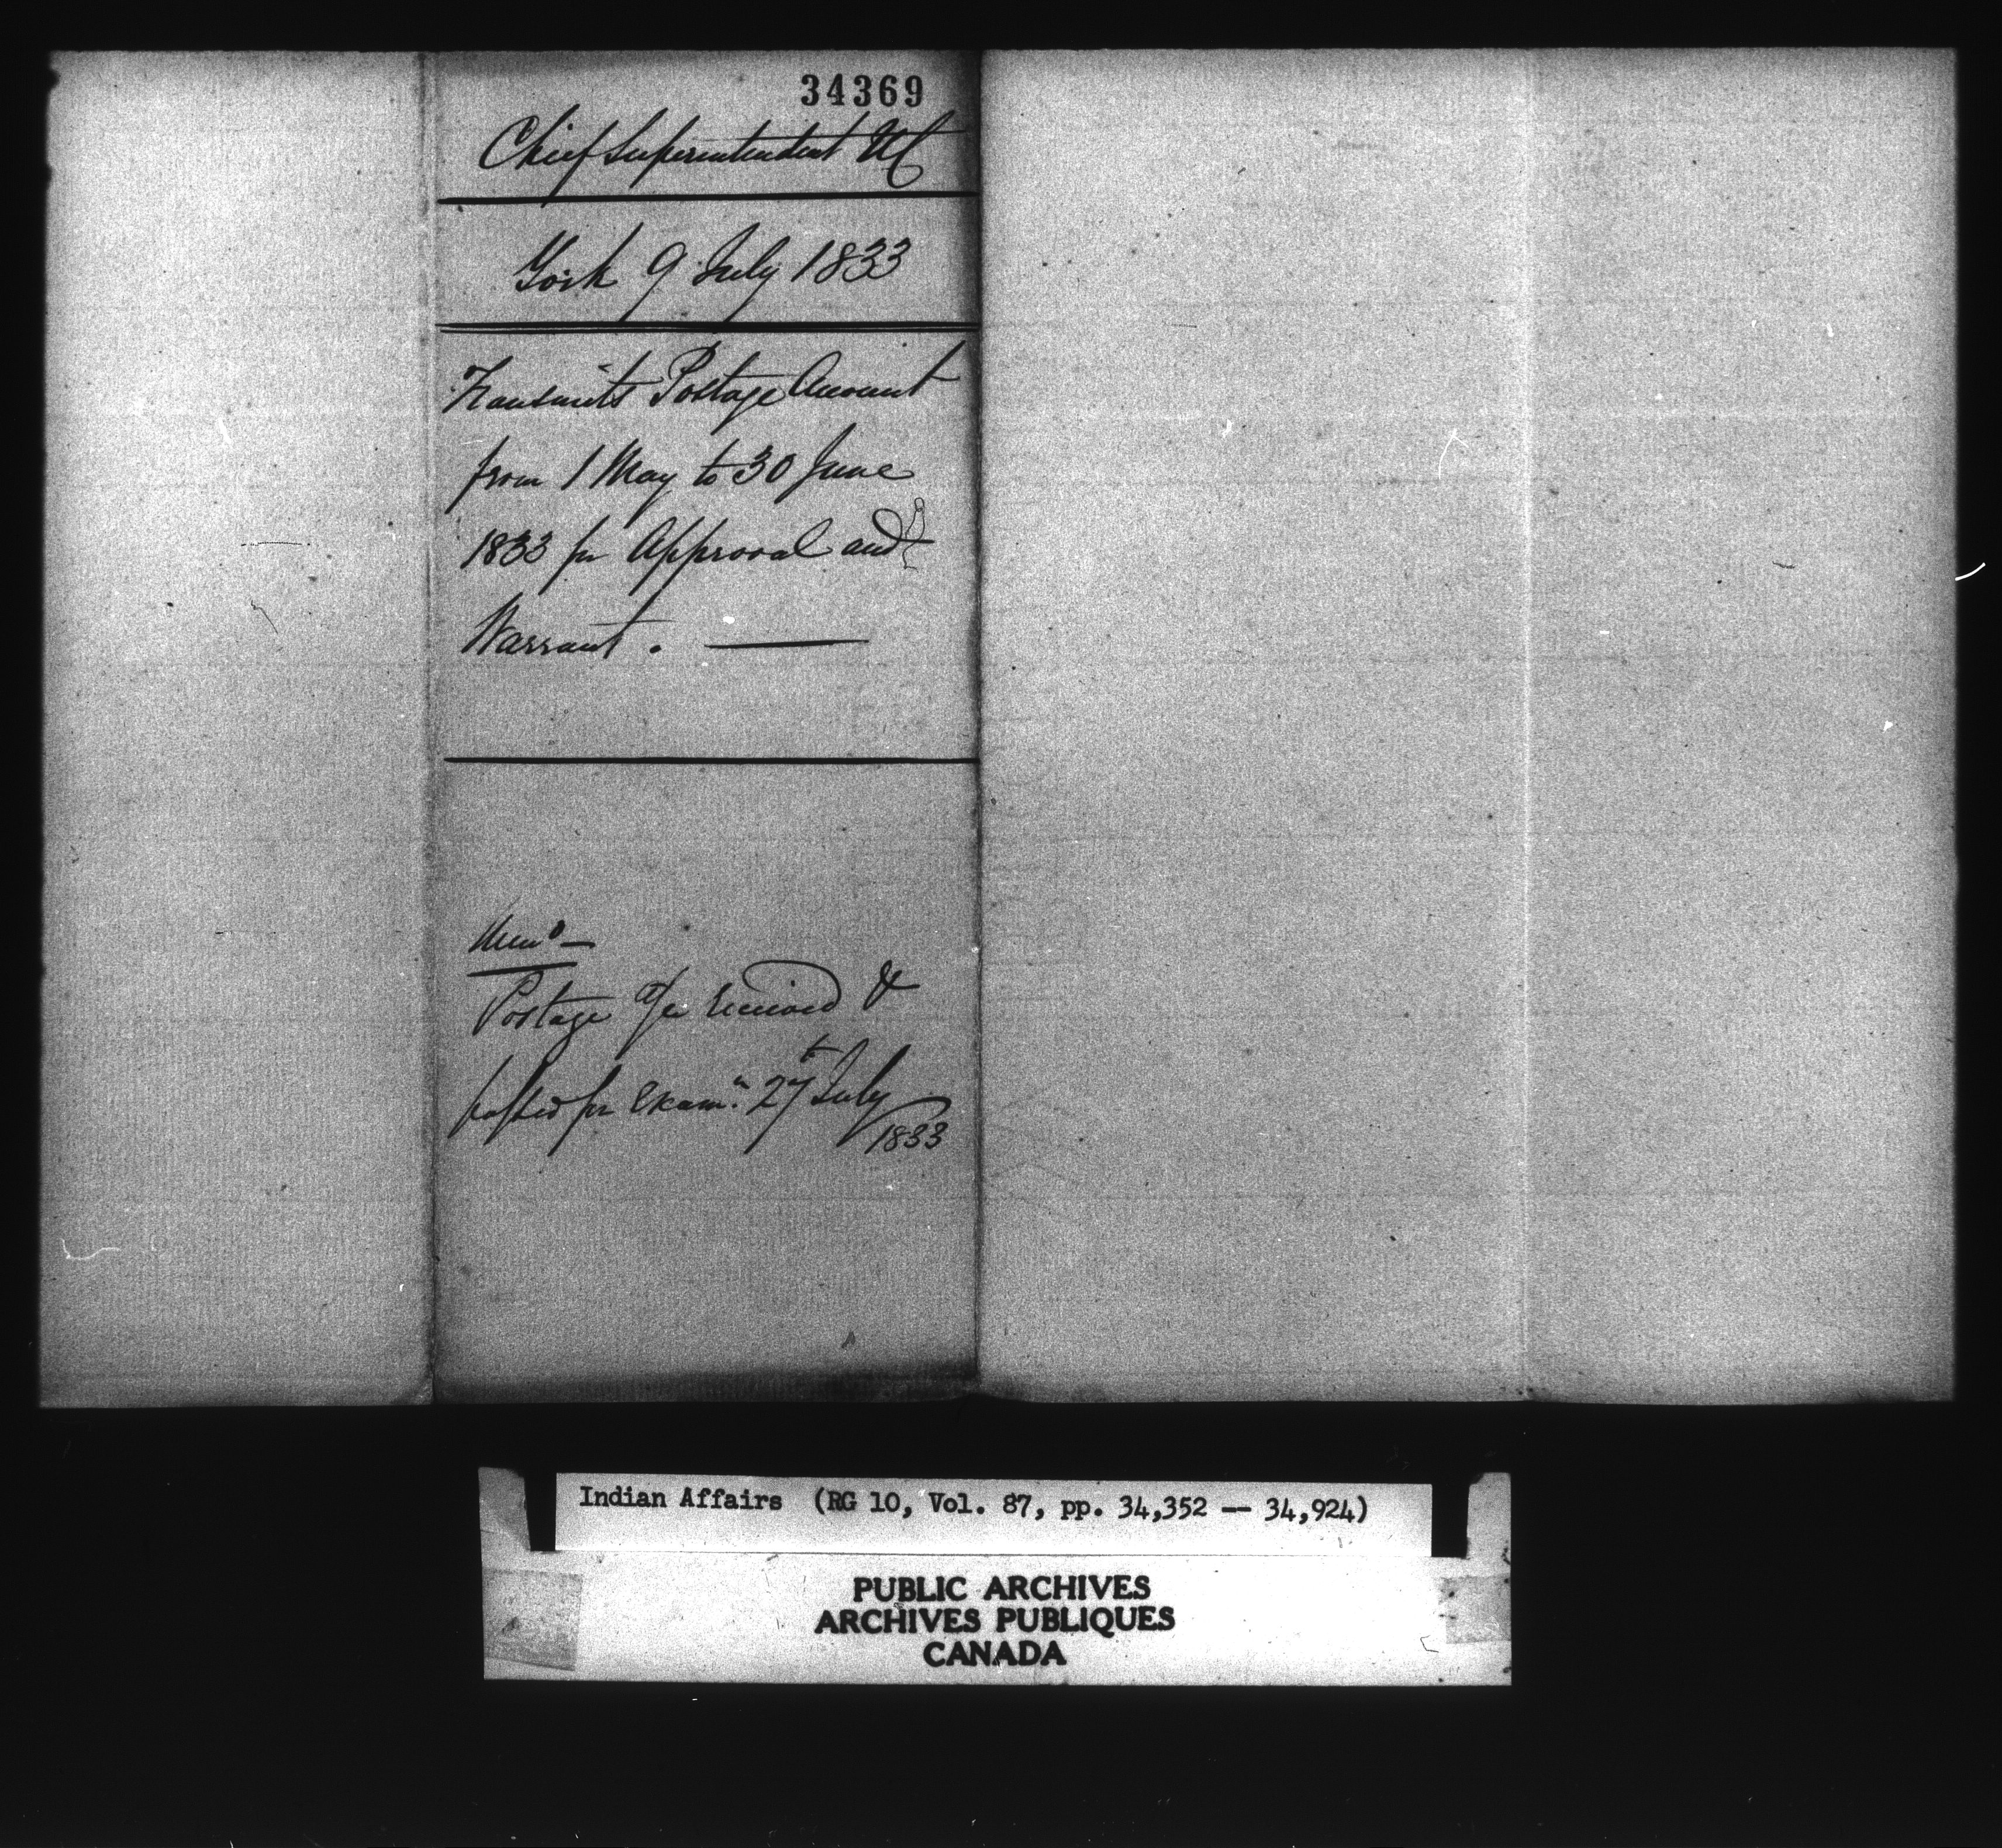 34369
Chief Superintendent UC
York 9 July 1833
Transmits Postage Account
from 1 May to 30 June
1833 for Approval and
Warrant.
Memo
Postage a/c received &
passed for Examn. 27th July
1833
Indian Affairs (RG 10, Vol. 87, pp. 34,352 -- 34,924)
PUBLIC ARCHIVES
ARCHIVES PUBLIQUES
CANADA